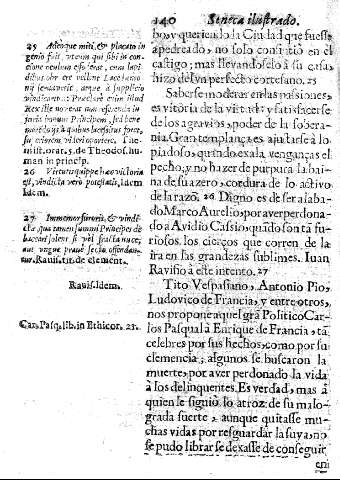 140 Seneca ilustrado.
25 Adeoque miti, & placato in
genio fuit, vt cum qui sibi in con-
cione oculum efoderat, cum laui
dibus obrere vellent Lacedemo
nij senauerit, atque à supplicio
vindicarit: Præclarè enim illud
Rex ille
ioris humani Principem, sed bene
à quibus læsisset forte,
Tue-
nist. orat. 5. de Theodos. hu.
man in princip.
26 Virtutis quippe hæc victoria
est, vindicta verò potestatis, Idem
Idem.
27 Immemor furoris, & vindi-
ctæ, qua tamen summi Principes de
baccari solent si vel fracta nuce,
aut vngue prauè secto offendan-
tur. Rauist. in de clement.
Rauis. Idem.
Car. Pasq. lib. in Ethicor. 23.
bo, y queriendo la Ciudad que fuesse
apedreado, no solo consintiò en el
castigo; mas lleuandoselo à su casa,
hizo del vn perfecto cortesano. 25
Saberse moderar en las passiones,
es vitoria de la virtud: y satisfacerse
de los agravios, poder de la sobera-
nia. Gran templança es ajustarse à lo
piadoso, quando exala venganças el
pecho, y no hazer de purpura la bai-
na de su azero, cordura de lo activo
de la razõ. 26 Digno es de ser alaba-
do Marco Aurelio, por aver perdona-
do à Avidio Cassio, quando son tã fu-
riosos, los cierços que corren de la
ira en las grandezas sublimes. Iuan
Ravisio à este intento. 27
Tito Vespasiano, Antonio Pio,
Ludovico de Francia, y entre otros,
nos propone aquel grã Politico Car-
los Pasqual à Enrique de Francia, tã
celebres por sus hechos, como por su
clemencia; algunos se buscaron la
muerte, por aver perdonado la vida
à los delinquentes. Es verdad, mas à
quien le siguiò lo atroz de su malo-
grada suerte, aunque quitasse mu-
chas vidas por resguardar la suya, no
se pudo librar se dexasse de conseguir
en